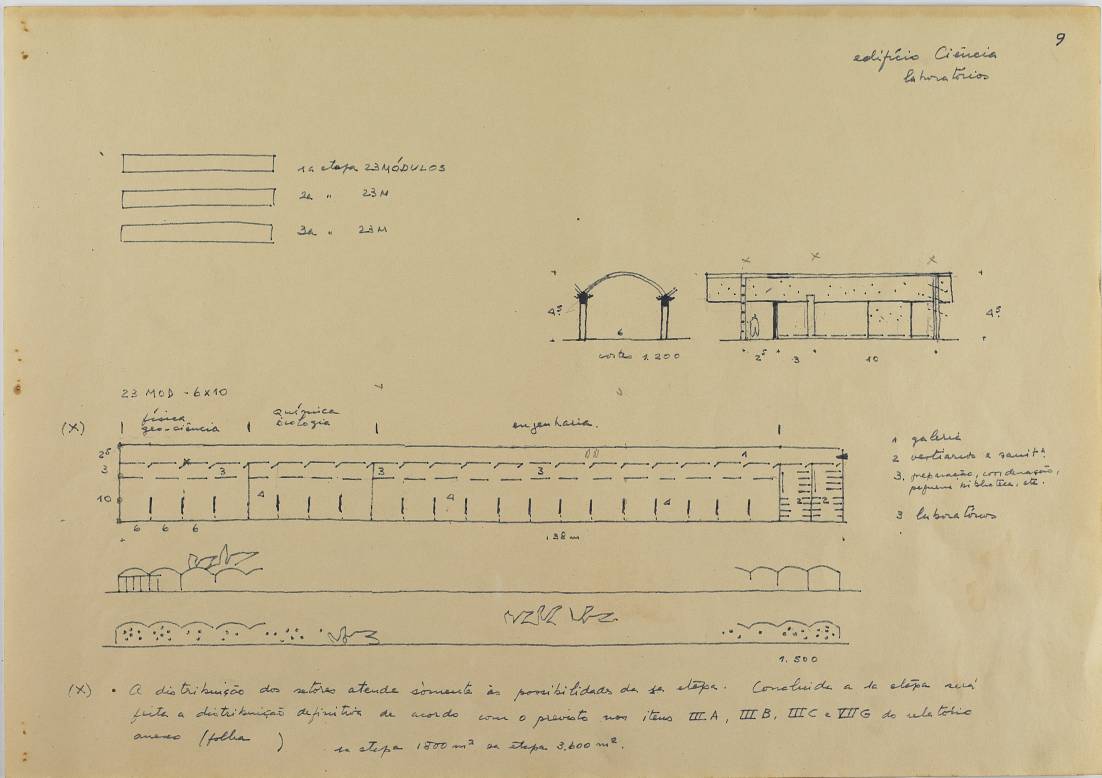 9
edifício Ciência
laboratórios
1a etapa 23 MÓDULOS
2a " 23 M
3a " 23 M
x x x
4.5 6 4.5
corte 1.200 2.5 3 10
23 MOD - 6x10
(X) física química engenharia.
geo-ciência biologia
2.5 1
3 3 3 3
10 4 4 4 2 2
6 6 6
138 m
1 galeria
2 vestiários e sanit.
3. preparação, coordenação,
pequena biblioteca, etc.
3 laboratórios
1.500
(X) • A distribuição dos setores atende sòmente às possibilidades da etapa. Concluida a 1a etapa será
feita a distribuição definitiva de acordo com o previsto nos itens III.A, III B, III C e VII G do relatório
anexo (folha )
1a etapa 1800 m² etapa 3.600 m².